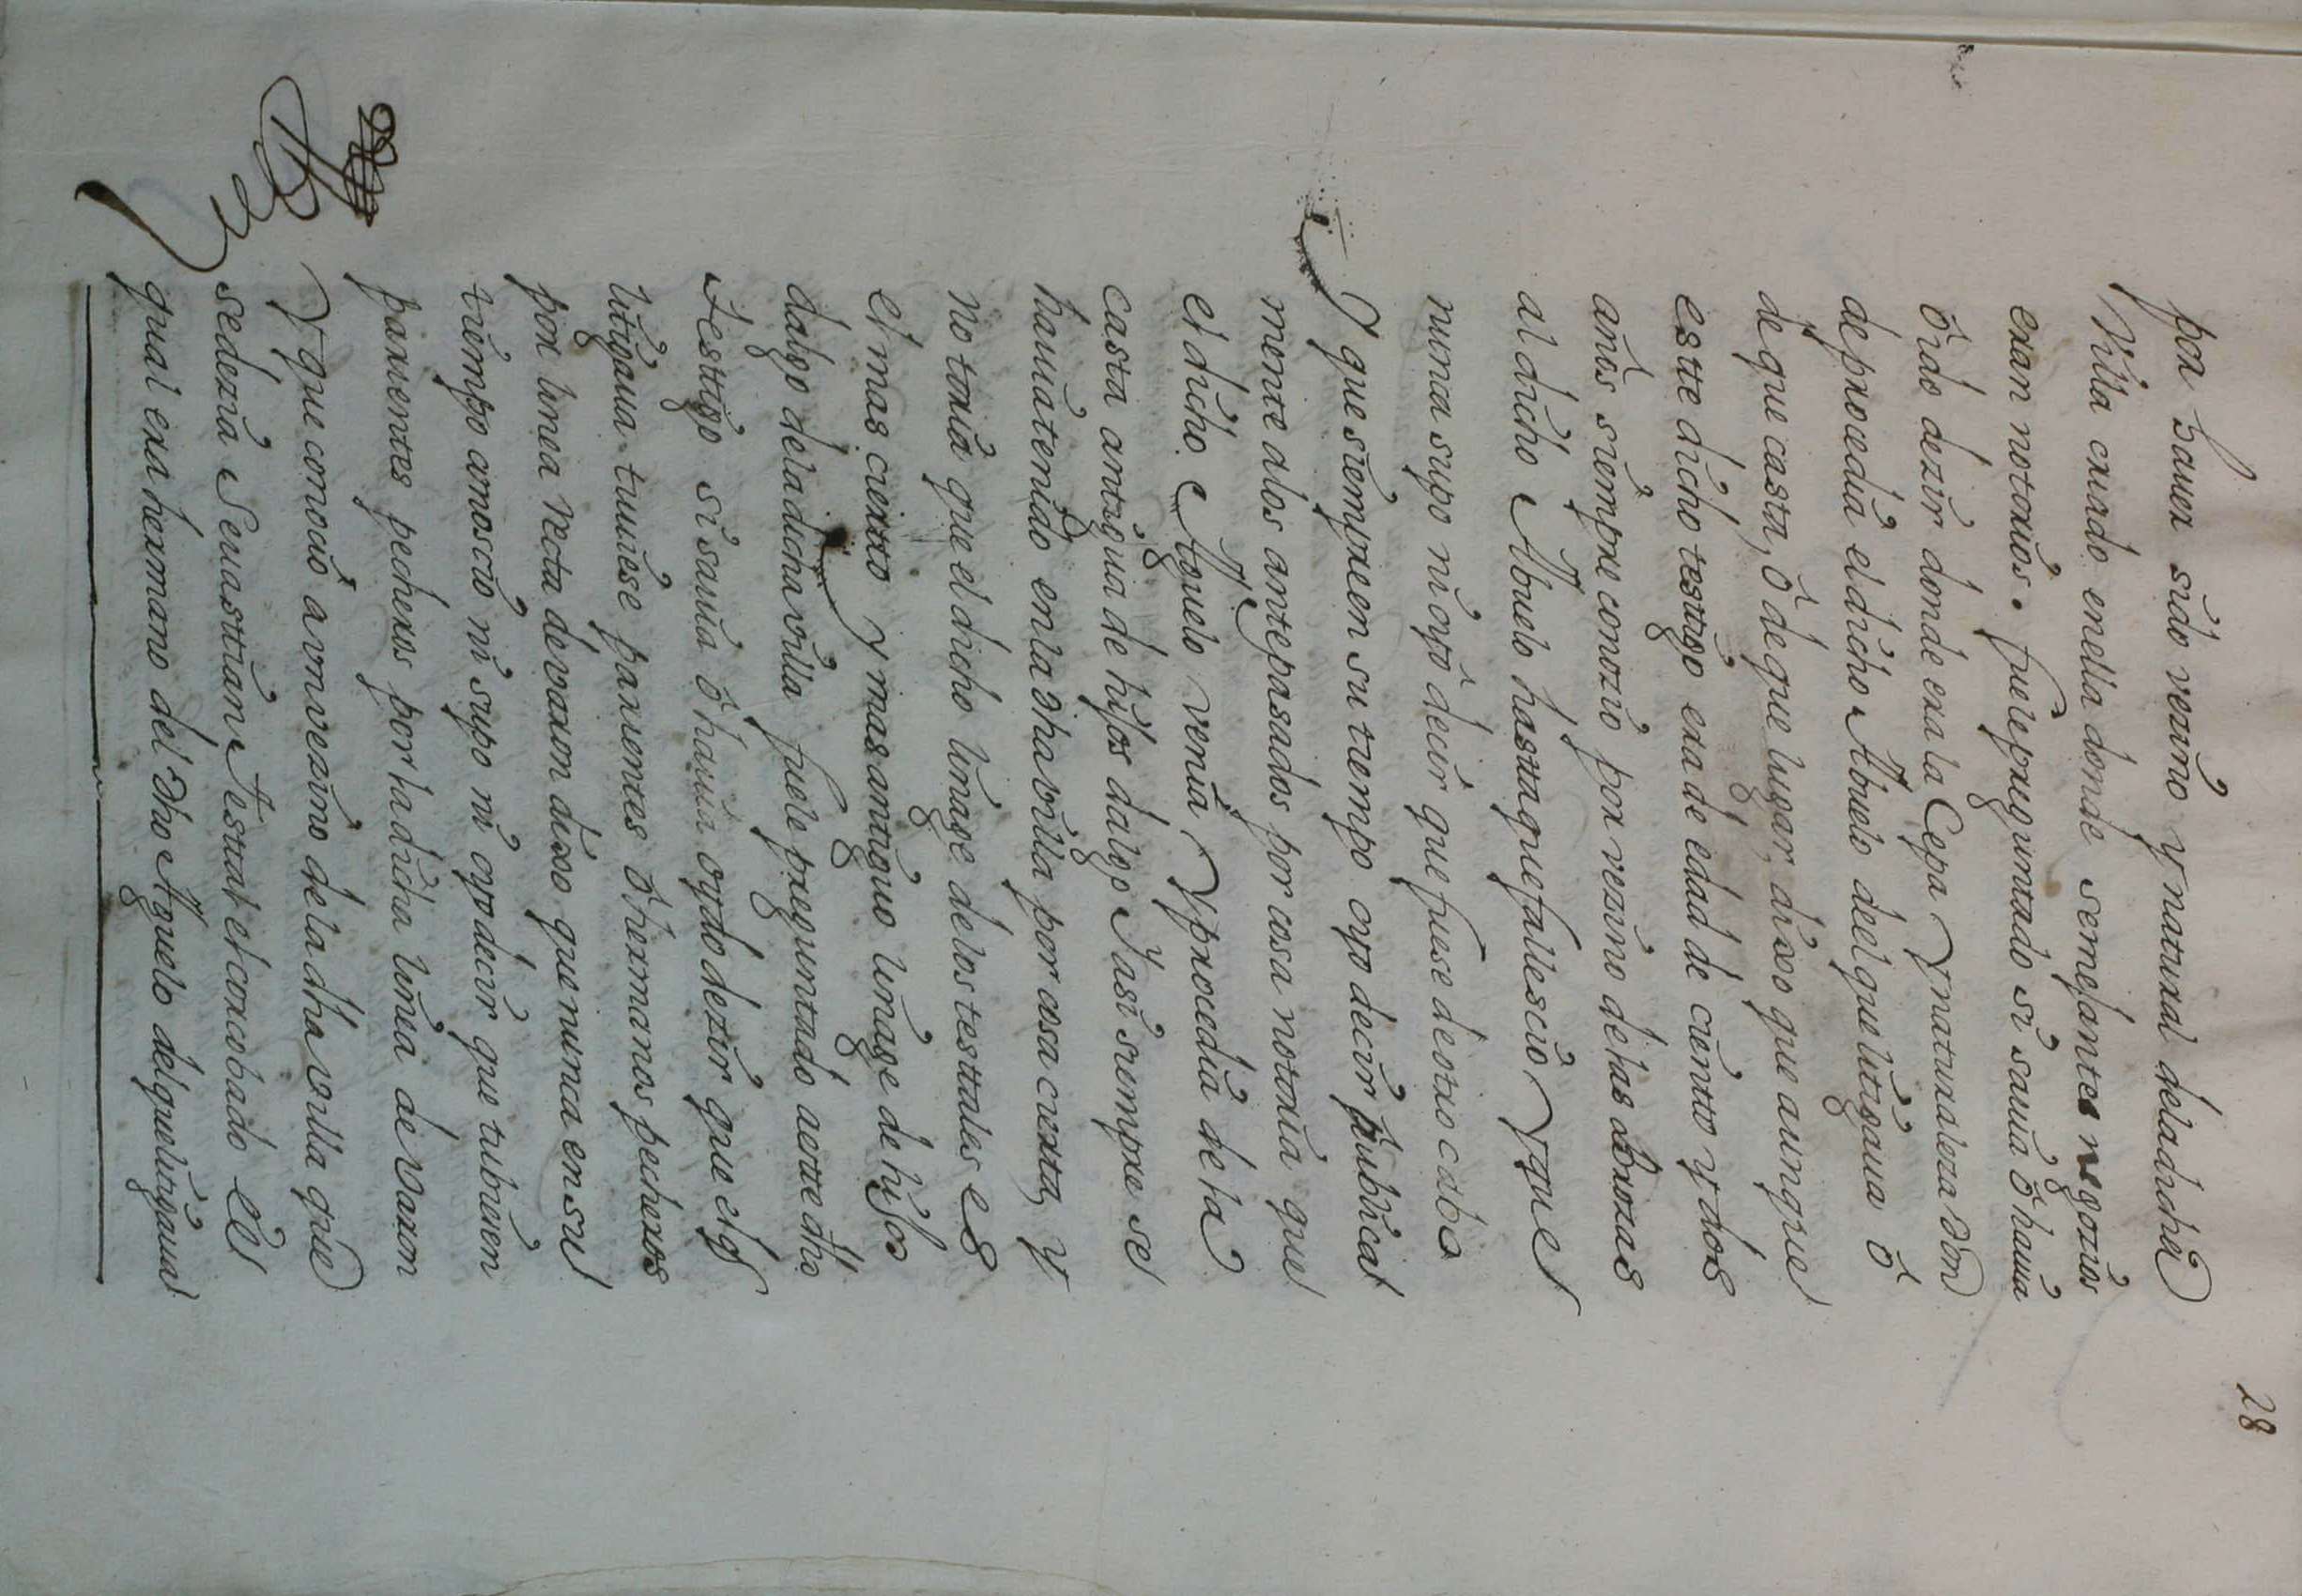 28
por hauer sido vezino y natural deladicha
Villa criado enella donde semejantes negozios
eran notorios. fuele preguntado si sauia ô hauia
ôido dezir donde era la Cepa Y naturaleza don
de procedia el dicho Abuelo del que litigaua ô
de que casta, ô de que lugar, dixo que aunque
estte dicho testigo era de edad de ciento y dos
años siempre conozio por vezino delas Brozas
al dicho Abuelo hasta que fallescio Y que
nunca supo ni oyo decir que fuese de otro cabo
Y que siempre en su tiempo oyo decir publica
mente a los antepasados por cosa notoria que
el dicho Aguelo venia Y procedia de la
casta antigua de hijos dalgo Y asi siempre se
hauia tenido en la dha villa por cosa cierta, y
notoria que el dicho linage delos testtales es
el mas cierto y mas antiguo linage de hijos
dalgo dela dicha villa fuele preguntado a este dho
Testtigo si sauia ô hauia oydo dezir que el q
litigaua tuuiese parientes ô hermanos pecheros
por linea recta de varon dixo que nunca en su
tiempo conoscio ni supo ni oyo decir que tubiesen
parientes pecheros por la dicha linea de varon
Y que conocio a un vezino de la dha villa que
sedezia Seuasttian testtal el corcobado el
qual era hermano del dho Aguelo del que litigaua